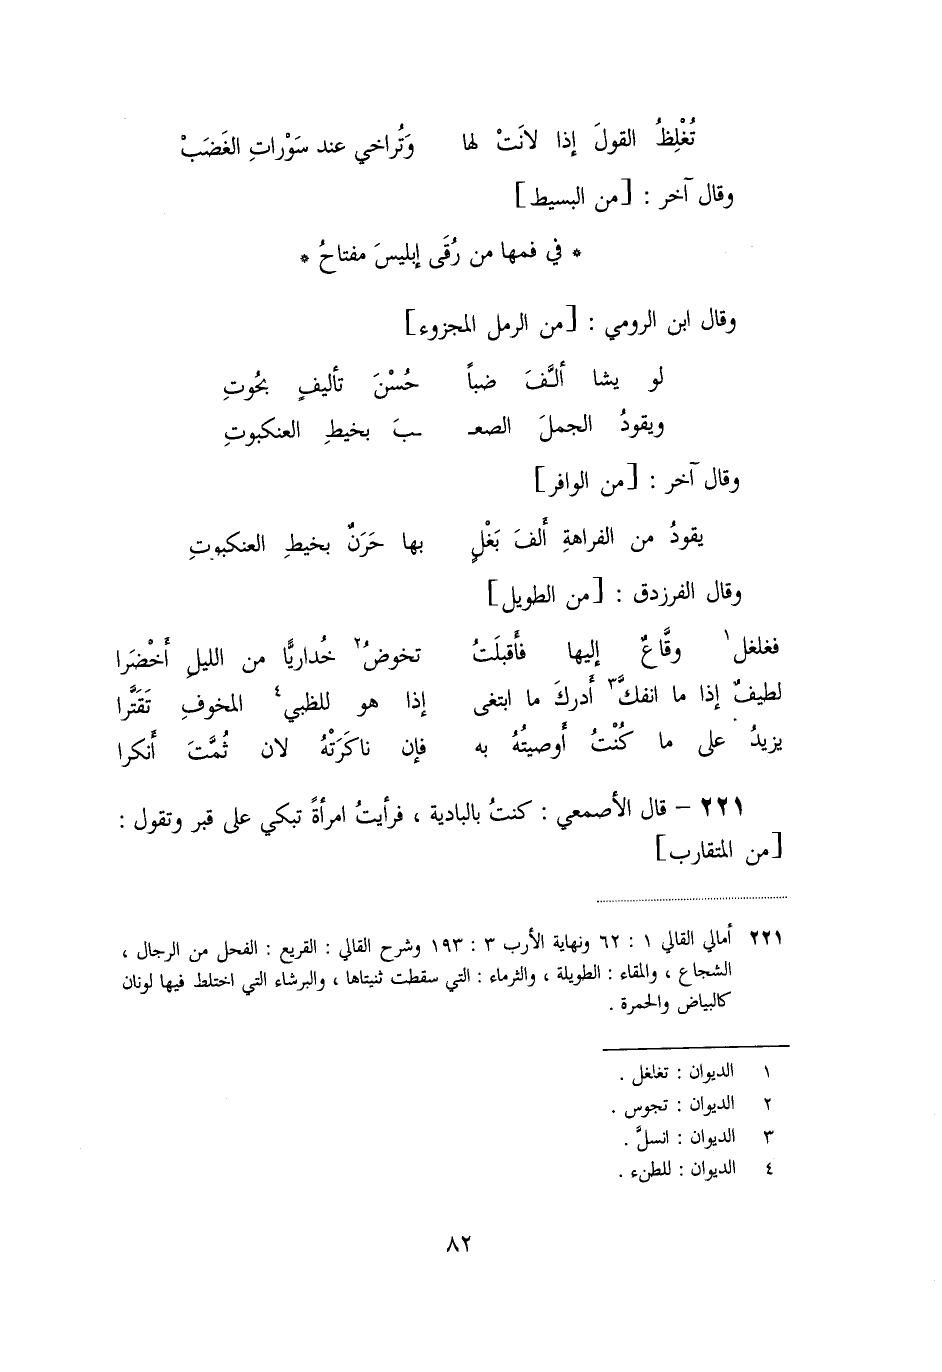 تُغْلِظُ القولَ إذا لانَتْ لها وَتُراخي عند سَوْراتِ الغَضَبْ
وقال آخر : [من البسيط]
* في فمها من رُقَى إبليسَ مفتاحُ *
وقال ابن الرومي : [من الرمل المجزوء]
لو يشا ألَّفَ ضباً حُسْنَ تأليفٍ بحُوتِ
ويقودُ الجملَ الصعـ ـبَ بخيطِ العنكبوتِ
وقال آخر : [من الوافر]
يقودُ من الفراهةِ أَلفَ بَغْلٍ بها حَرَنٌ بخيطِ العنكبوتِ
وقال الفرزدق : [من الطويل]
فغلغل١ وقَّاعٌ إليها فأَقبلَتُ تخوضُ٢ خُداريًّا من الليلِ أَخْضَرا
لطيفٌ إذا ما انفكَّ٣ أَدركَ ما ابتغى إذا هو للظبي٤ المخوفِ تَقَتَّرا
يزيدُ على ما كُنْتُ أَوصيتُهُ به فإن ناكَرَتْهُ لان ثُمَّتَ أَنكرا
٢٢١ – قال الأصمعي : كنتُ بالبادية ، فرأيتُ امرأةً تبكي على قبر وتقول :
[من المتقارب]
٢٢١ أمالي القالي ١ : ٦٢ ونهاية الأرب ٣ : ١٩٣ وشرح القالي : القريع : الفحل من الرجال ،
الشجاع ، والمقاء : الطويلة ، والثرماء : التي سقطت ثنيتاها ، والبرشاء التي اختلط فيها لونان
كالبياض والحمرة .
١ الديوان : تغلغل .
٢ الديوان : تجوس .
٣ الديوان : انسلَّ .
٤ الديوان : للطنء .
٨٢